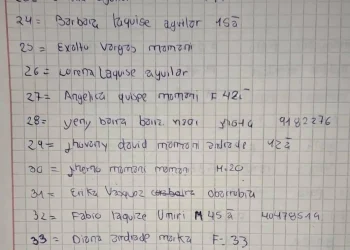 24= Barbara laquise aguilar 15ā
25= Exalta Vargas mamani
26= Lorena laquise aguilar
27= Angelica quispe mamani F 42
28= yeny baira baira 9182276
29= jhovany david mamani andrade 12ā
30= mamani mamani H.20
31= Erika Vasquez
32= Fabio laquize Umiri M 45ā 40478519
33= Diana andrade marka F= 33